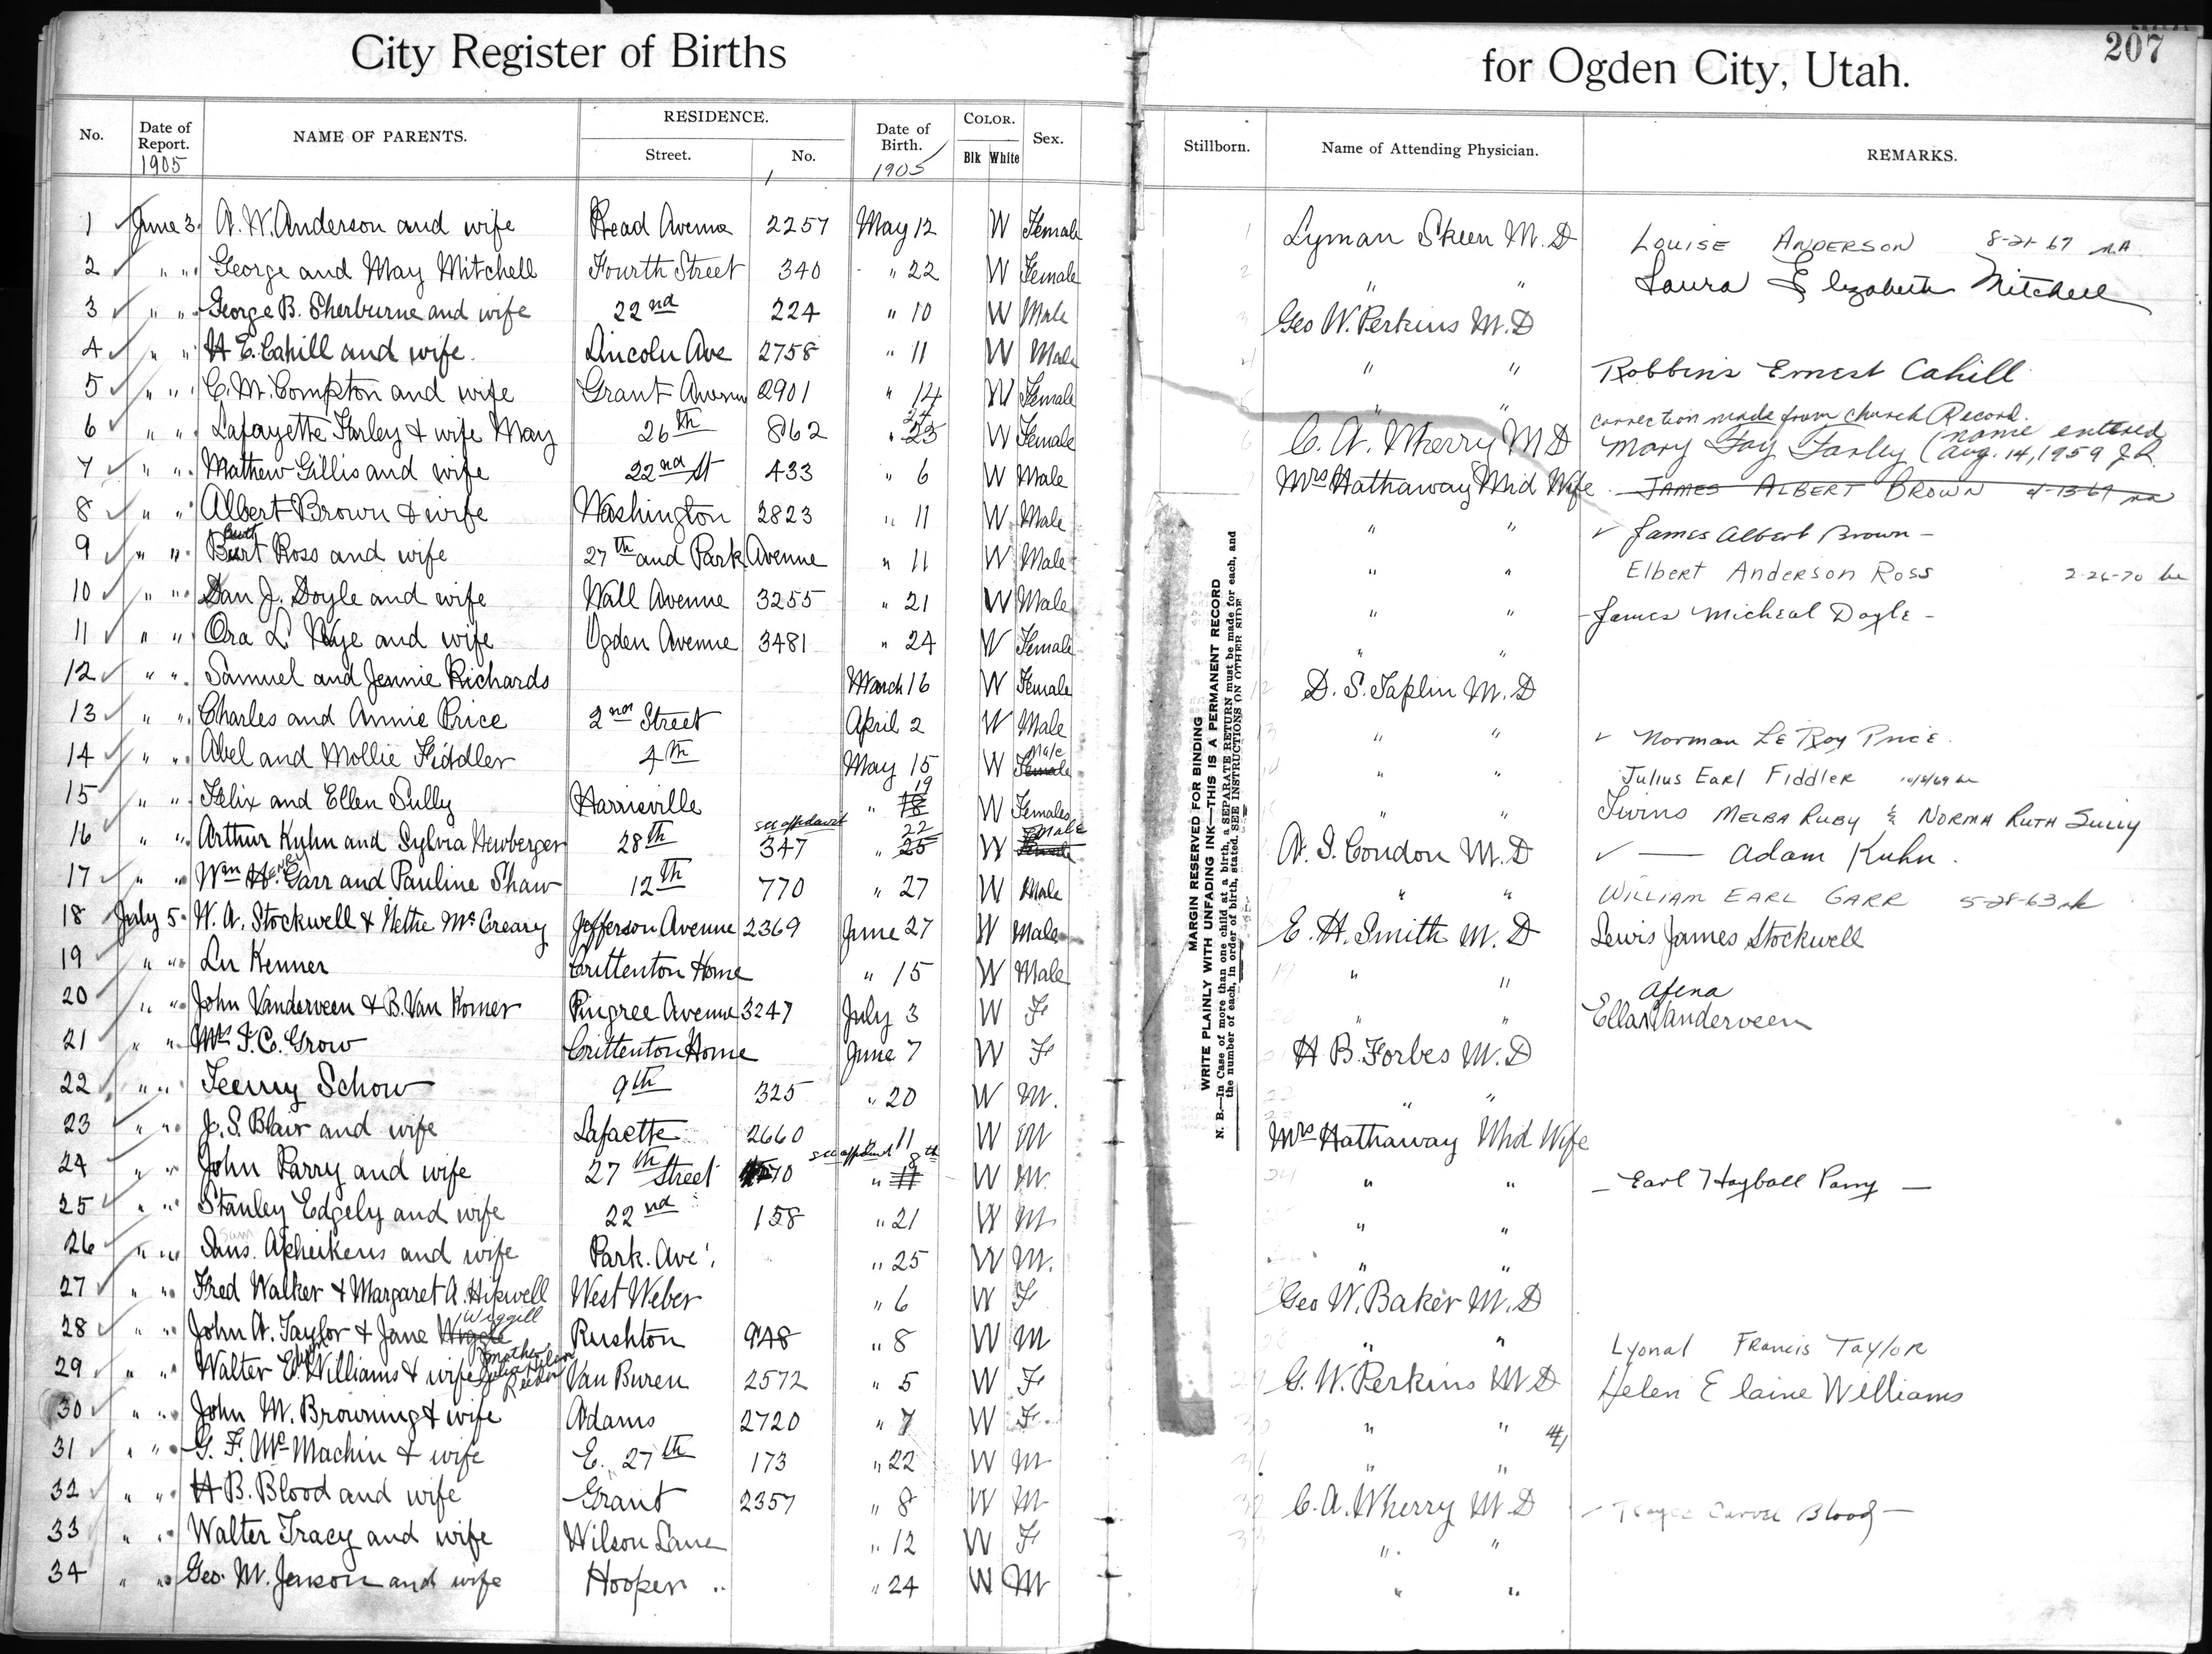 City Register of Births for Ogden City, Utah. 207
No. Date of Report. 1905 NAME OF PARENTS. RESIDENCE. Street. No. Date of Birth. 1905 COLOR. Blk White Sex. Stillborn. Name of Attending Physician. REMARKS.
1 June 3 A. W. Anderson and wife Read Avenue 2257 May 12 W Female 1 Lyman Skeen M.D LOUISE ANDERSON 8-21-67
2 " " George and May Mitchell Fourth Street 340 " 22 W Female 2 " " Laura Elizabeth Mitchell
3 " " George B. Sherburne and wife 22nd 224 " 10 W Male 3 Geo W. Perkins M.D
4 " " H E. Cahill and wife. Lincoln Ave 2758 " 11 W Male 4 " " Robbins Ernest Cahill
5 " " C. M. Compton and wife Grant Avenue 2901 " 14 W Female " "
correction made from church Record.
6 " " Lafayette Farley & wife May 26th 862 " 24 23 W Female 6 C. A. Wherry M D Mary Fay Farley (name entered Aug. 14, 1959 J.R.
7 " " Mathew Gillis and wife 22nd St 433 " 6 W Male 7 Mrs Hathaway Mid Wife JAMES ALBERT BROWN 4-13-67
8 " " Albert Brown & wife Washington 2823 " 11 W Male " " ✓ James Albert Brown -
9 " " Burt Ross and wife 27th and Park Avenue " 11 W Male " " Elbert Anderson Ross 2-26-70
10 " " Dan J. Doyle and wife Wall Avenue 3255 " 21 W Male " " - James Micheal Doyle -
11 " " Ora L. Nye and wife Ogden Avenue 3481 " 24 W Female " "
12 " " Samuel and Jennie Richards March 16 W Female 12 D. S. Taplin M. D
13 " " Charles and Annie Price 2nd Street April 2 W Male 13 " " ✓ Norman LeRoy Price.
14 " " Abel and Mollie Fiddler 4th May 15 W Male Female 14 " " Julius Earl Fiddler
15 " " Felix and Ellen Sully Harrisville " 19 18 W Females " " Twins MELBA RUBY & NORMA RUTH SULLY
16 " " Arthur Kuhn and Sylvia Newberger 28th see affidavit 347 " 22 25 W Male Female A. S. Condon M. D ✓ — Adam Kuhn.
17 " " Wm Henry H. Garr and Pauline Shaw 12th 770 " 27 W Male " " WILLIAM EARL GARR 5-28-63
18 July 5 W. A. Stockwell & Nettie McCreary Jefferson Avenue 2369 June 27 W Male E. H. Smith M. D Lewis James Stockwell
19 " " Lu Kenner Crittenton Home " 15 W Male 19 " "
20 " " John Vanderveen & B. Van Komer Pingree Avenue 3247 July 3 W F " " Ella Afena Vanderveen
21 " " Mrs F. C. Grow Crittenton Home June 7 W F H B. Forbes M. D
22 " " Schow 9th 325 " 20 W M. 22 " "
23 " " J. S. Blair and wife Lafaette 2660 " 11 W M Mrs Hathaway Mid Wife
24 " " John Parry and wife 27th Street 70 see affidavit " 8th 11 W M. 24 " " - Earl Hayball Parry -
25 " " Stanley Edgely and wife 22nd 158 " 21 W M " "
26 " " Sam and wife Park. Ave. " 25 W M. " "
27 " " Fred Walker & Margaret A. Hipwell West Weber " 6 W F Geo W. Baker M. D
28 " " John A. Taylor & Jane Wiggill Rushton 948 " 8 W M 28 " " Lyonal Francis Taylor
29 " " Walter E. Williams & wife mother Reeder Van Buren 2572 " 5 W F 29 G. W. Perkins M D Helen Elaine Williams
30 " " John M. Browning & wife Adams 2720 " 7 W F. 30 " "
31 " " G. F. McMachin & wife E. 27th 173 " 22 W M 31 " "
32 " " H B. Blood and wife Grant 2357 " 8 W M 32 C. A. Wherry M. D Blood -
33 " " Walter Tracy and wife Wilson Lane " 12 W F 33 " "
34 " " Geo. M. Jenson and wife Hooper " 24 W M " "
MARGIN RESERVED FOR BINDING
WRITE PLAINLY WITH UNFADING INK—THIS IS A PERMANENT RECORD
N. B.—In Case of more than one child at a birth, a SEPARATE RETURN must be made for each, and
the number of each, in order of birth, stated. SEE INSTRUCTIONS ON OTHER SIDE